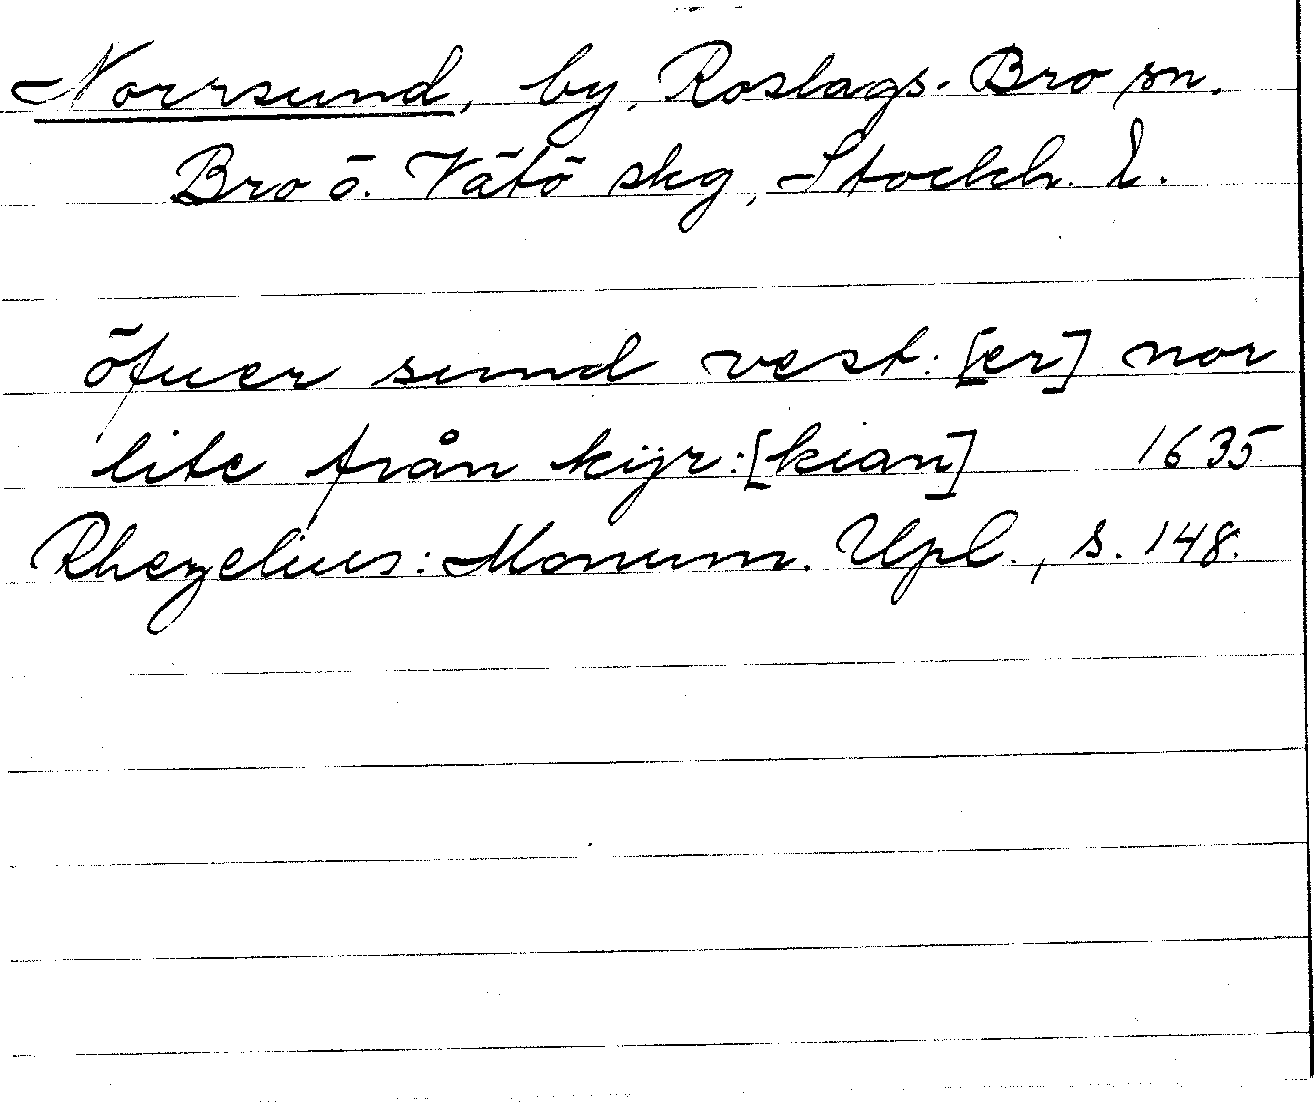 Norrsund, by, Roslags-Bro sn.
Bro o. Vätö skg, Stockh. l.
öfuer sund vest: [er] nor
lite från kijr:[kian] 1635
Rhezelius: Monum. Upl., s. 148.